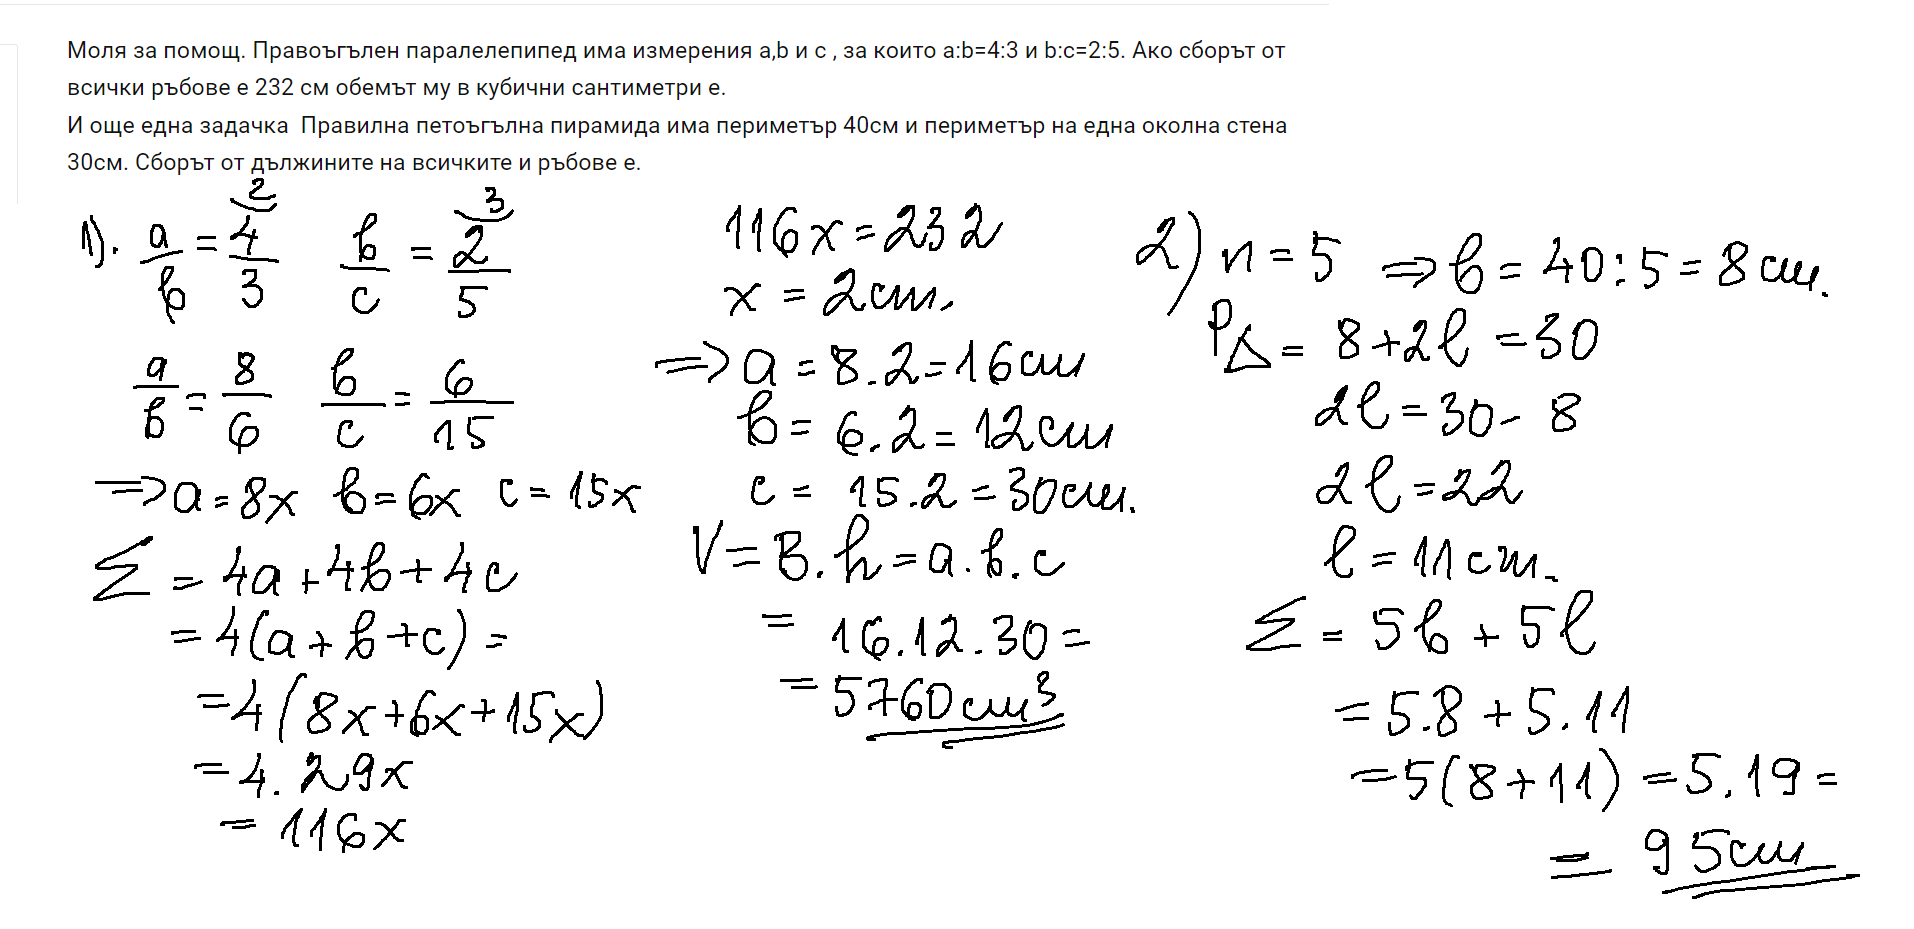 Моля за помощ. Правоъгълен паралелепипед има измерения a,b и c , за които a:b=4:3 и b:c=2:5. Ако сборът от
всички ръбове е 232 см обемът му в кубични сантиметри е.
И още една задачка  Правилна петоъгълна пирамида има периметър 40см и периметър на една околна стена
30см. Сборът от дължините на всичките и ръбове е.
1). a/b = 4/3 (2)  b/c = 2/5 (3)
a/b = 8/6  b/c = 6/15
=> a = 8x  b = 6x  c = 15x
Σ = 4a + 4b + 4c
= 4(a + b + c) =
= 4(8x + 6x + 15x)
= 4.29x
= 116x
116x = 232
x = 2cm.
=> a = 8.2 = 16cm
b = 6.2 = 12cm
c = 15.2 = 30cm.
V = B.h = a.b.c
= 16.12.30 =
= 5760cm³
2) n = 5 => b = 40:5 = 8cm.
P△ = 8 + 2l = 30
2l = 30 - 8
2l = 22
l = 11cm.
Σ = 5b + 5l
= 5.8 + 5.11
= 5(8 + 11) = 5.19 =
= 95cm